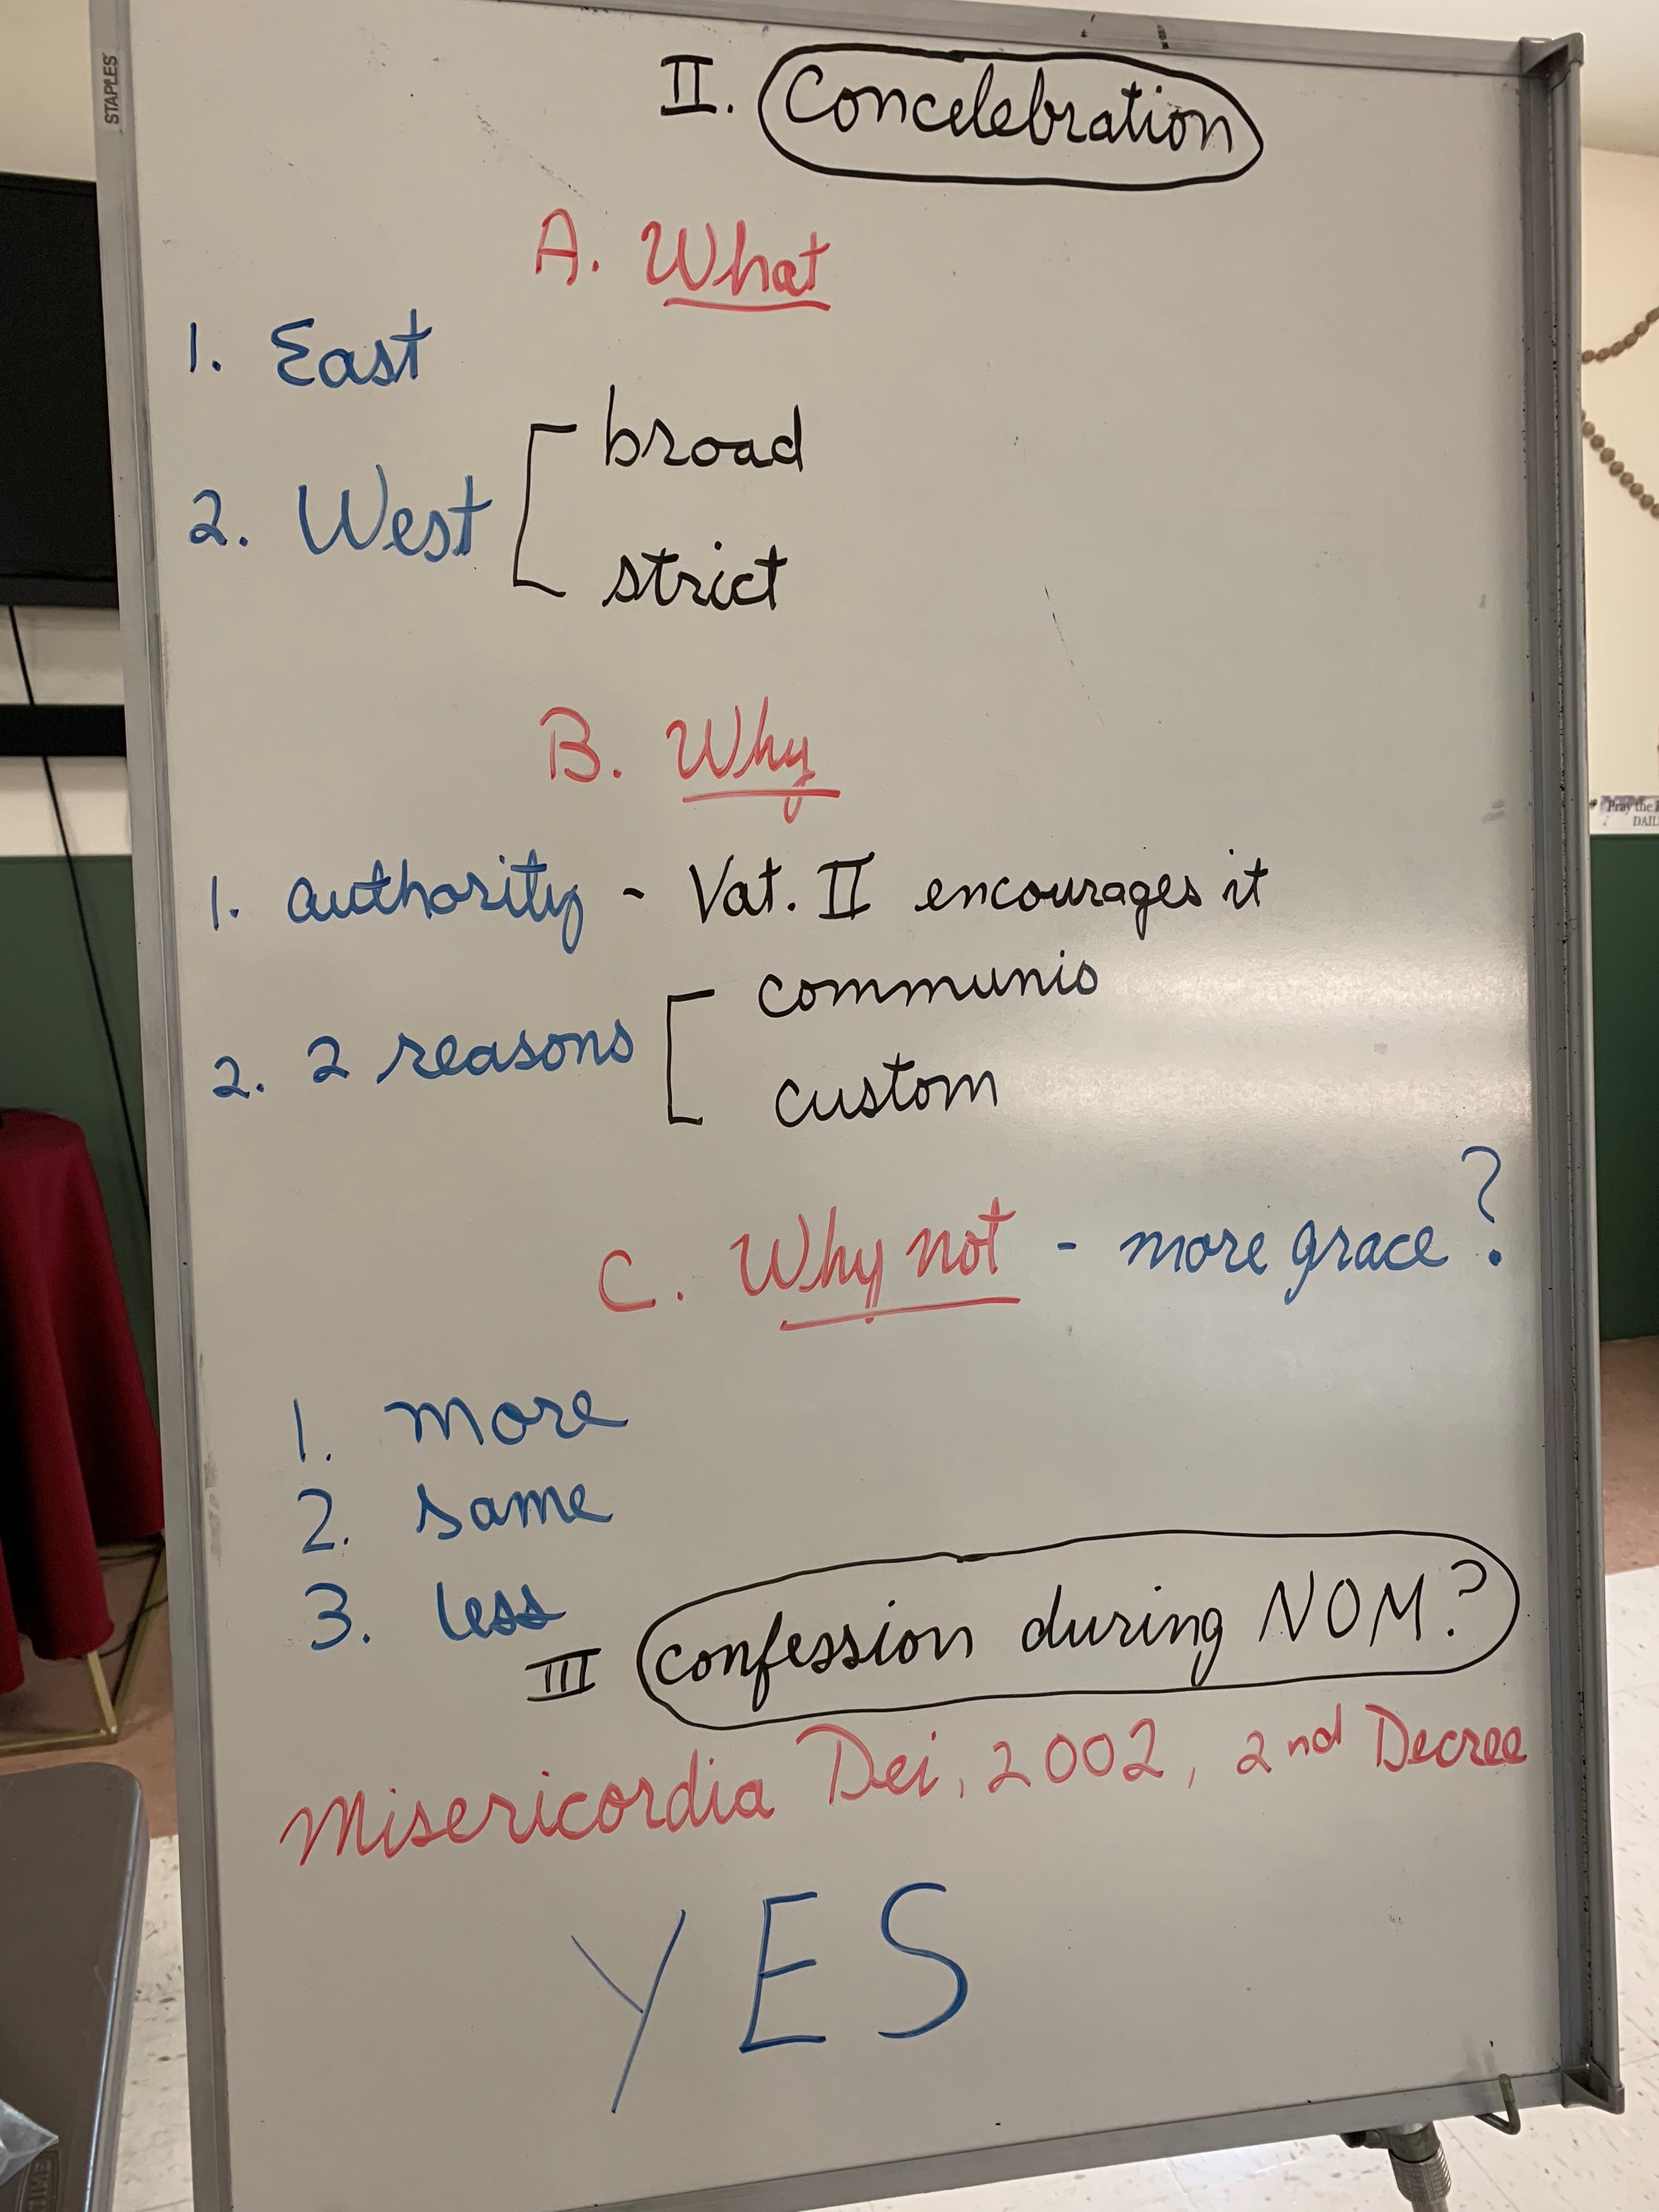 STAPLES
II. Concelebration
A. What
1. East
2. West
broad
strict
B. Why
1. authority - Vat. II encourages it
2. 2 reasons
communio
custom
C. Why not - more grace?
1. more
2. same
3. less
III confession during NOM?
Misericordia Dei, 2002, 2nd Decree
YES
Pray the
DAIL